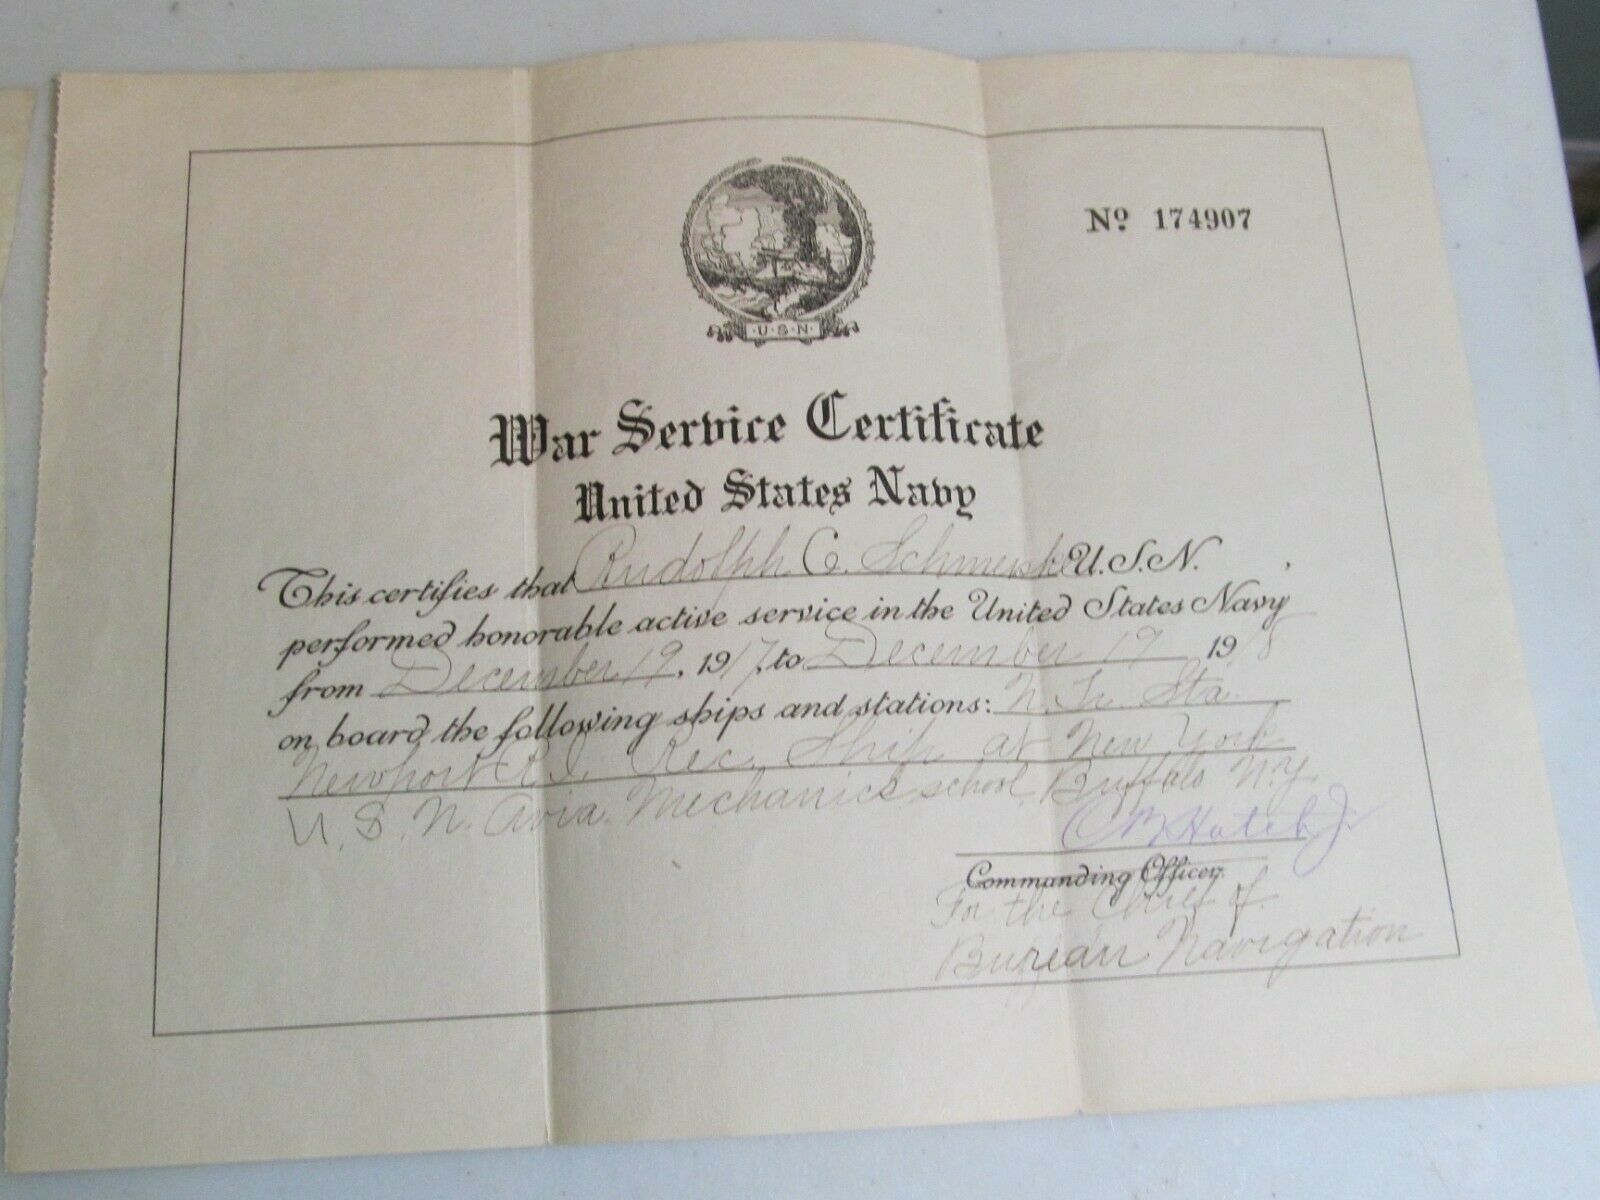 No. 174907
·U·S·N·
War Service Certificate
United States Navy
This certifies that Rudolph C. U.S.N.
performed honorable active service in the United States Navy
from December 19, 1917, to December 19 1918
on board the following ships and stations: N. Tr. Sta.
Newport R.I. Rec. Ship at New York
U.S.N. Avia. Mechanics school, Buffalo N.Y.
Hatch Jr
Commanding Officer.
For the Chief of
Bureau Navigation